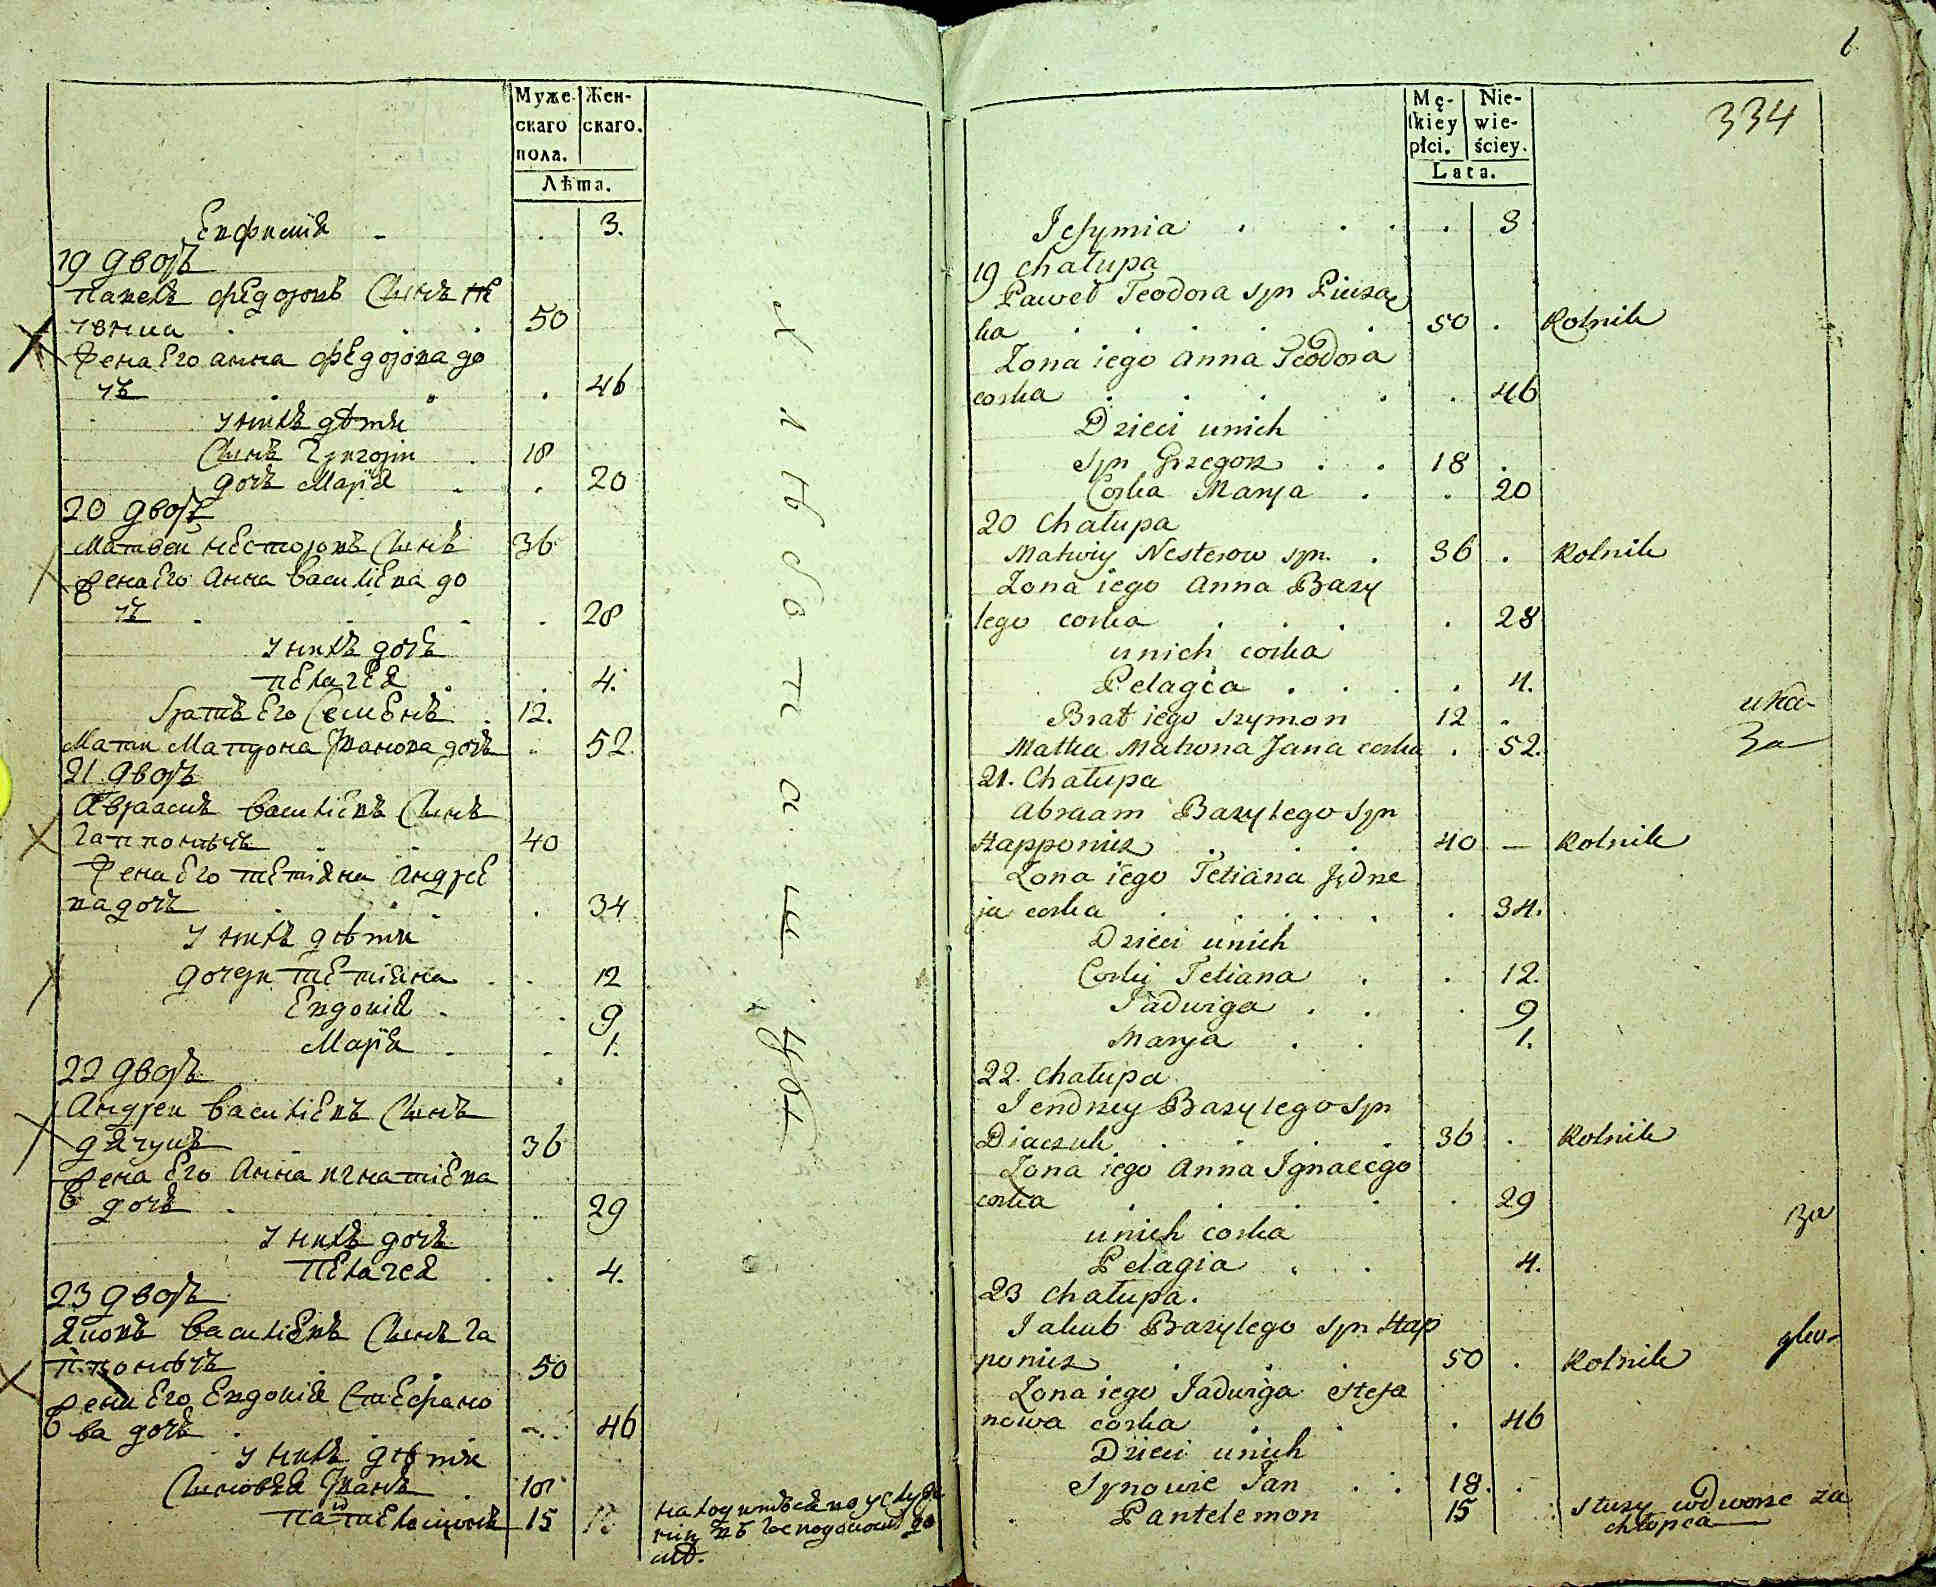 Муже
скаго
пола.
Жен-
скаго.
Лѣта.
Евфимія 3.
19 дворъ
Павелъ Федоровъ Сынъ Пе
ченка 50
жена Его Анна Федорова до
чъ 46
у нихъ дѣти
Сынъ Григорiи 18
дочъ Марiя 20
20 дворъ
Матвеи Несторовъ Сынъ 36
жена Его Анна Василіева до
чъ 28
у нихъ дочъ
Пелагея 4.
братъ Его Семенъ 12.
Мати Матрона Иванова дочъ 52
21 дворъ
Авраамъ Василіевъ Сынъ
Гаппоничъ 40
жена Его Тетіяна Андрее
ва дочъ 34
у нихъ дѣти
дочери Тетіяна 12
Евдокія 9
Марія 1.
22 дворъ
Андреи Василіевъ Сынъ
дячукъ 36
жена Его Анна Игнатіева
дочъ 29
у нихъ дочъ
Пелагея 4.
23 дворъ
Яковъ Василіевъ Сынъ Га
ппоничъ 50
жена Его Евдокія Стефано
ва дочъ 46
у нихъ дѣти
Сыновья Иванъ 18
Пантелеимонъ 15
находитъся по услуже
нію въ Господскомъ до
мѣ.
6
334
Mę-
ſkiey
płci.
Nie-
wie-
ściey.
Lata.
Jefymia 3
19 Chałupa
Paweł Teodora syn Piecza
ka 50 Rolnik
Zona iego Anna Teodora
corka 46
Dzieci unich
syn Grzegorz 18
Corka Marya 20
20 Chałupa
Matwiy Nesterow syn 36 Rolnik
Zona iego Anna Bazy
lego corka 28
unich corka
Pelagia 4.
Brat iego Szymon 12
Matka Matrona Jana corka 52.
21. Chałupa
Abraam Bazylego syn
Happonicz 40 — Rolnik
Zona iego Tetiana Jędrze
ja corka 34.
Dzieci unich
Corki Tetiana 12.
Jadwiga 9
Marya 1.
22. Chałupa
Jendrzey Bazylego syn
Diaczuk 36 Rolnik
Zona iego Anna Ignacego
corka 29
unich corka
Pelagia 4.
23 Chałupa.
Jakub Bazylego syn Hap
ponicz 50 Rolnik
Zona iego Jadwiga Stefa
nowa corka 46
Dzieci unich
Synowie Jan 18.
Pantelemon 15
służy wdworze za
chłopca